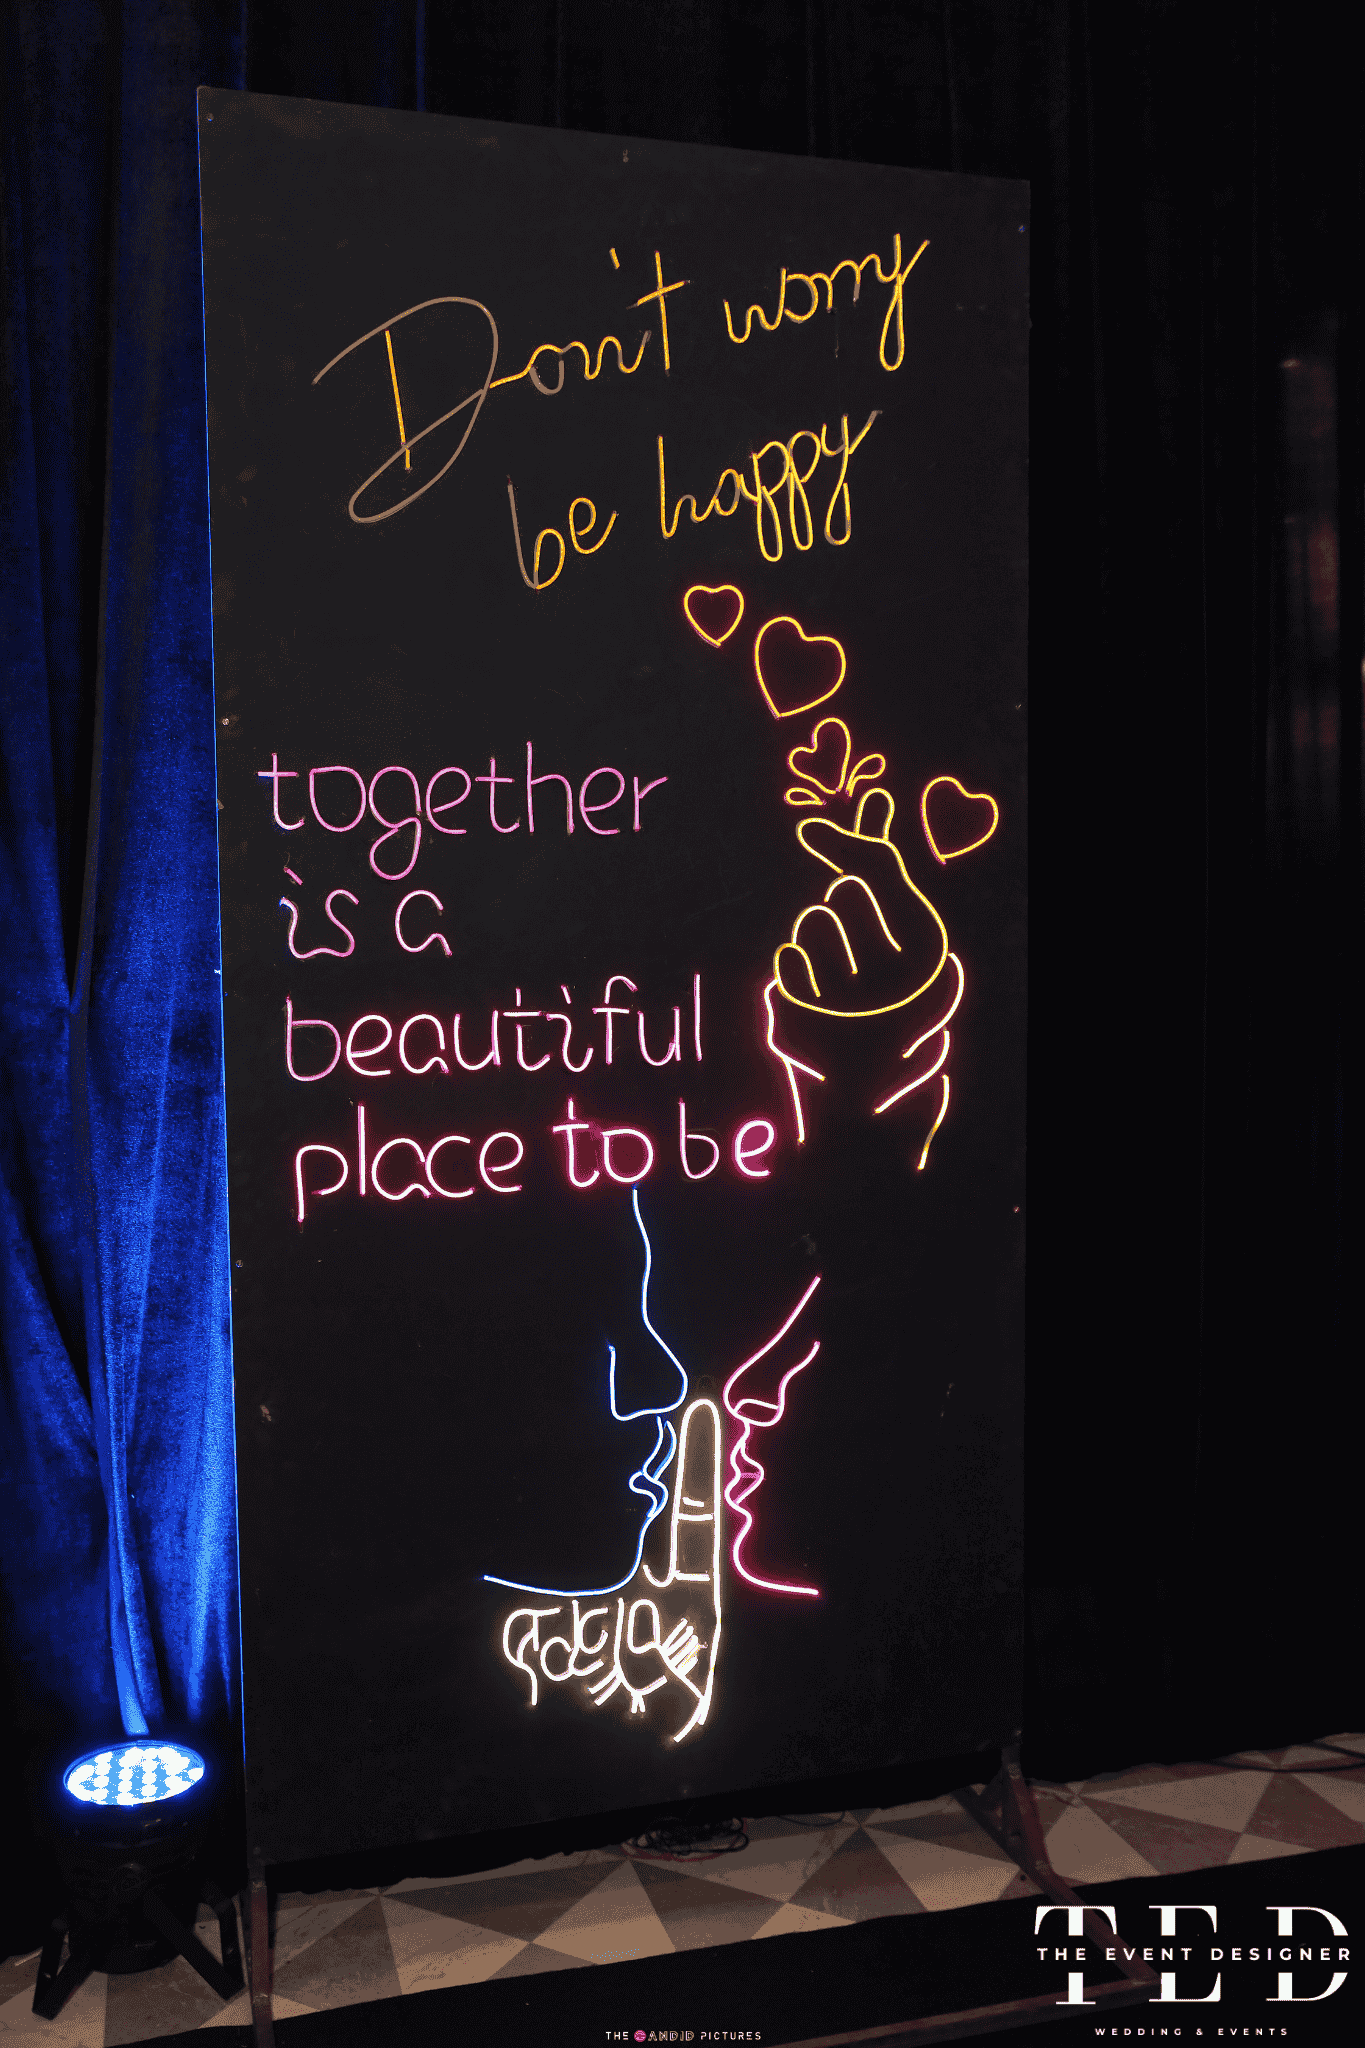 Don't worry
be happy
together
is a
beautiful
place to be
TED
THE EVENT DESIGNER
WEDDING & EVENTS
THE CANDID PICTURES